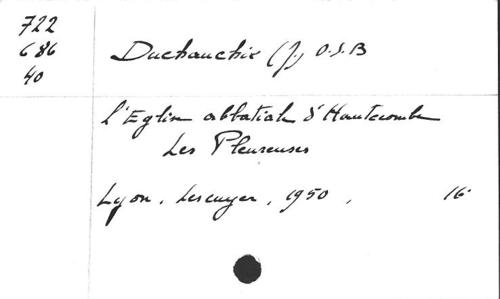 722
686
40
Duchauchix (J.) O.S.B
L'Eglise abbatiale d'Hautecombe
Les Pleureuses
Lyon, Lescuyer, 1950, 16